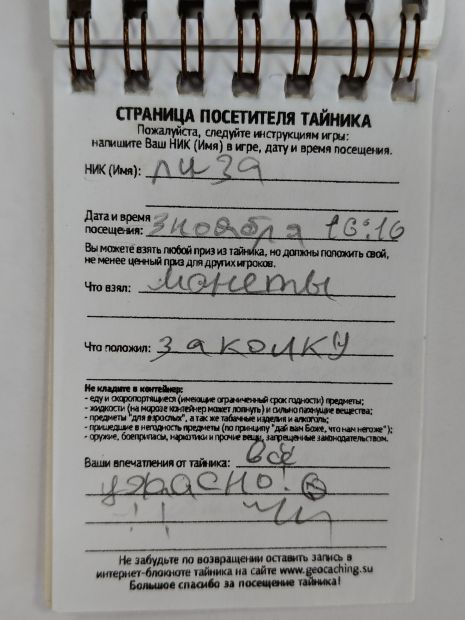 СТРАНИЦА ПОСЕТИТЕЛЯ ТАЙНИКА
Пожалуйста, следуйте инструкциям игры:
напишите Ваш НИК (Имя) в игре, дату и время посещения.
НИК (Имя): лиза
Дата и время
посещения: 3 ноября 16:16
Вы можете взять любой приз из тайника, но должны положить свой,
не менее ценный приз для других игроков.
Что взял: монеты
Что положил: заколку
Не кладите в контейнер:
- еду и скоропортящиеся (имеющие ограниченный срок годности) предметы;
- жидкости (на морозе контейнер может лопнуть) и сильно пахнущие вещества;
- предметы "для взрослых", а так же табачные изделия и алкоголь;
- пришедшие в негодность предметы (по принципу "дай вам Боже, что нам негоже");
- оружие, боеприпасы, наркотики и прочие вещи, запрещенные законодательством.
Ваши впечатления от тайника: всё
ужасно!
!!
Не забудьте по возвращении оставить запись в
интернет-блокноте тайника на сайте www.geocaching.su
Большое спасибо за посещение тайника!